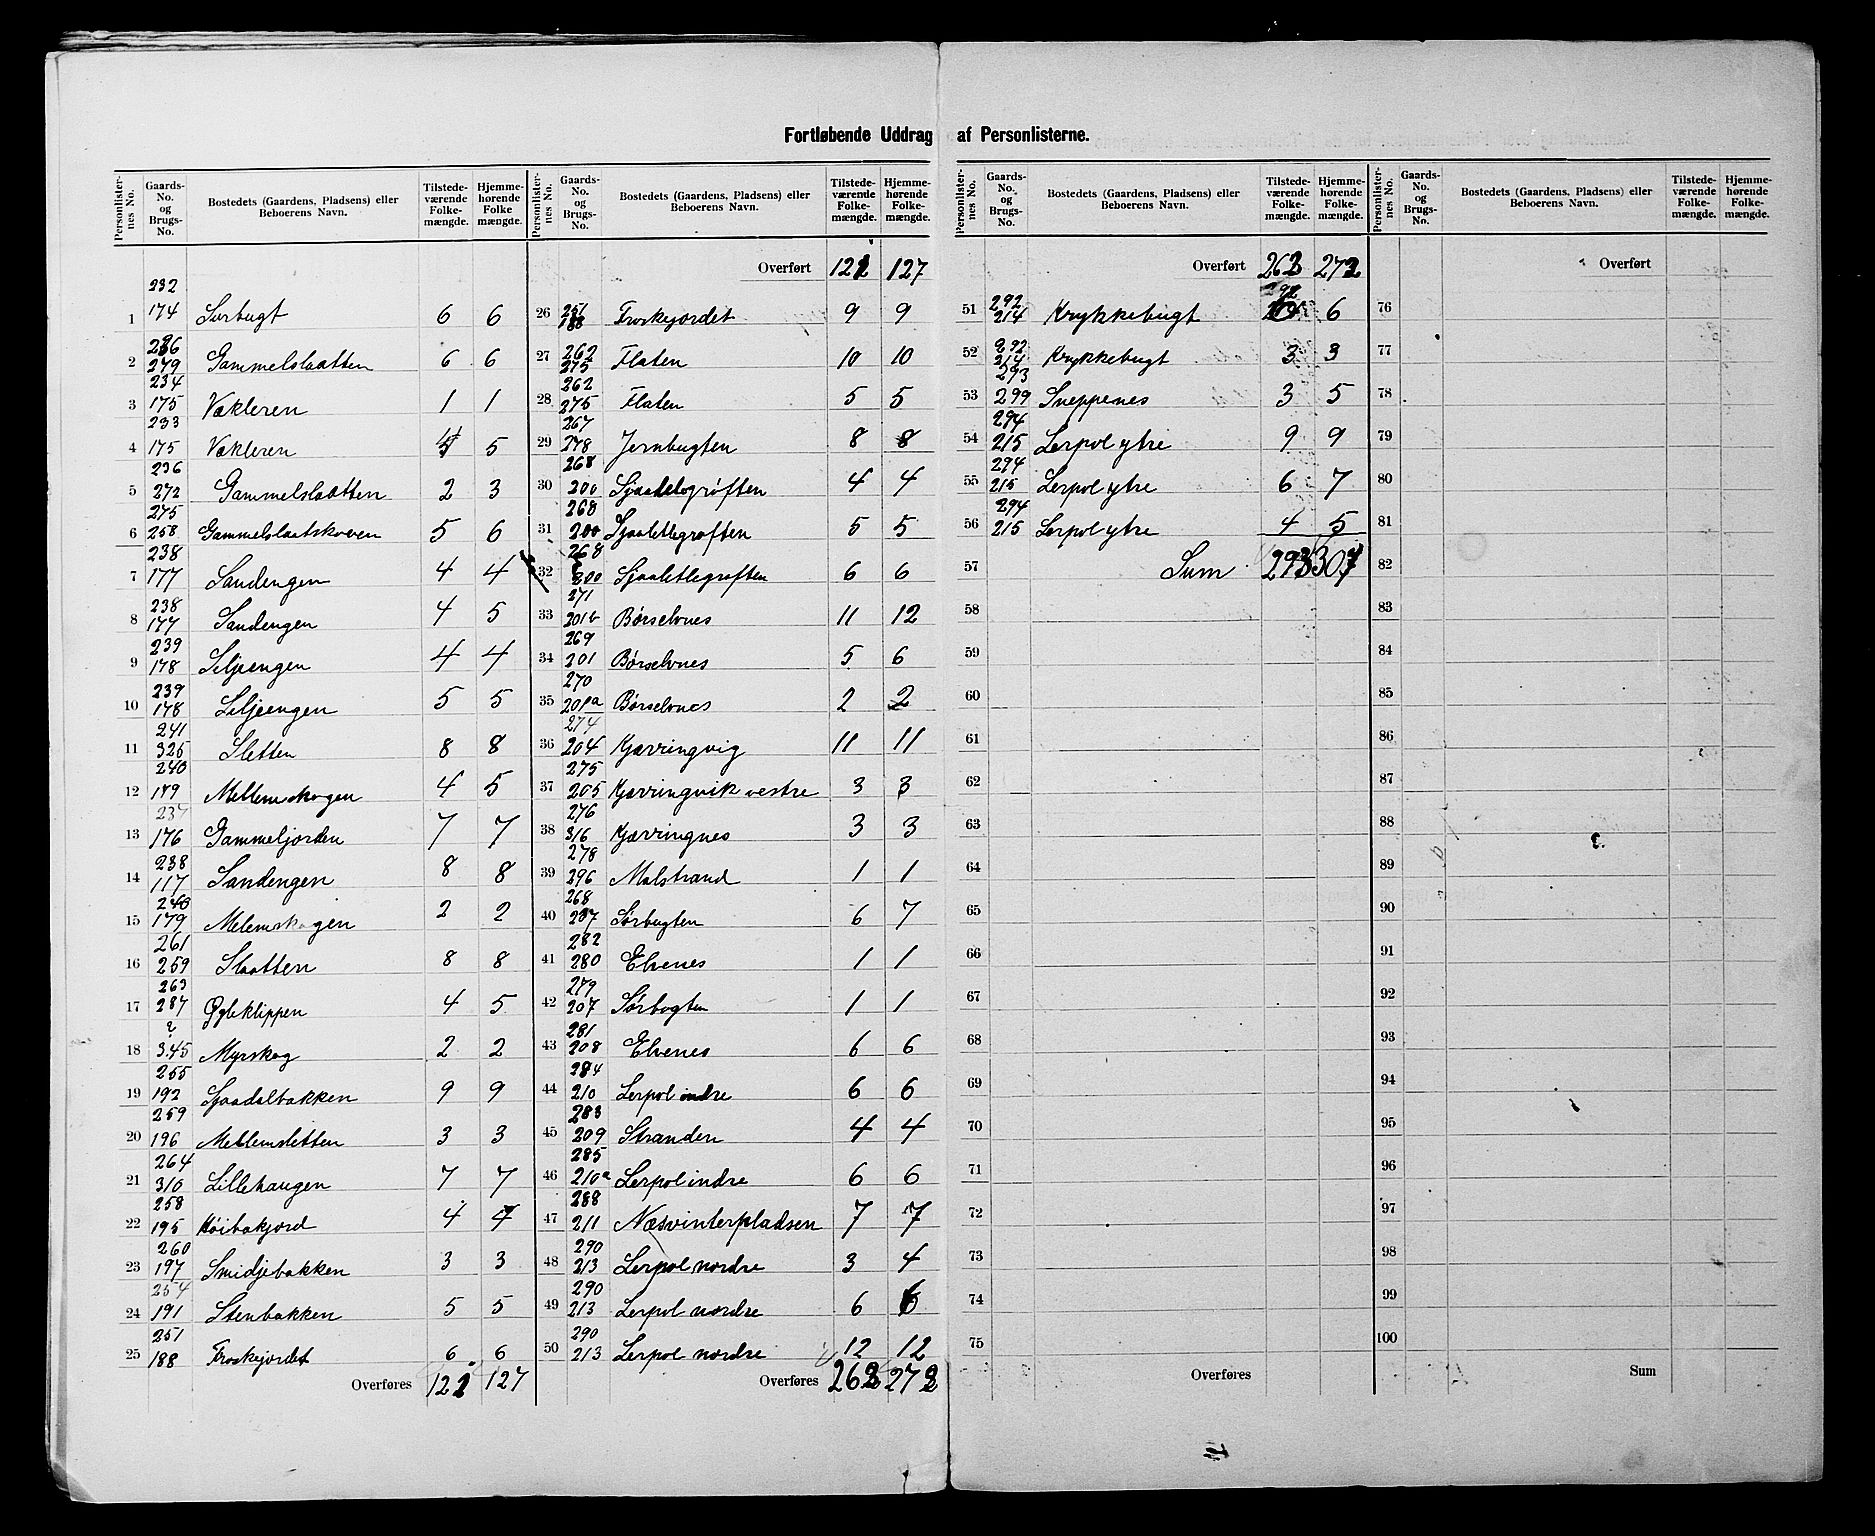 Fortløbende Uddrag af Personlisterne.
Personlister-nes No. Gaards-No. og Brugs-No. Bostedets (Gaardens, Pladsens) eller Beboerens Navn. Tilstede-værende Folke-mængde. Hjemme-hørende Folke mængde.
232
1 174 Surbugt 6 6
236
2 279 Gammelslaatten 6 6
234
3 175 Vækleren 1 1
233
4 175 Vækleren 5
236
5 272 Gammelslaatten 2 3
275
6 258 Gammelslaatskoven 5 6
238
7 177 Sandengen 4 4
238
8 177 Sandengen 4 5
239
9 178 Siljeengen 4 4
239
10 178 Siljeengen 5 5
241
11 325 Sletten 8 8
240
12 179 Mellemskogen 4 5
237
13 176 Gammeljorden 7 7
238
14 117 Sandengen 8 8
240
15 179 Melemskogen 2 2
261
16 259 Slaatten 8 8
263
17 287 Ogleklippen 4 5
?
18 345 Myrskog 2 2
255
19 192 Sjaadalbakken 9 9
259
20 196 Mellemsletten 3 3
264
21 310 Lillehaugen 7 7
258
22 195 Høibakjord 4 4
260
23 197 Smidjebakken 3 3
254
24 191 Stenbakken 5 5
251
25 188 Troskejordet 6 6
Overføres 121 127
Personlister-nes No. Gaards-No. og Brugs-No. Bostedets (Gaardens, Pladsens) eller Beboerens Navn. Tilstede-værende Folke-mængde. Hjemme-hørende Folke-mængde.
Overført 121 127
251
26 188 Troskejordet 9 9
262
27 275 Flaten 10 10
262
28 275 Flaten 5 5
267
29 278 Jernbugten 8 8
268
30 200 Sjaaletegrøften 4 4
268
31 200 Sjaaletlegrøften 5 5
268
32 200 Sjaaletlegrøften 6 6
271
33 201b Børselvnes 11 12
269
34 201 Børselvnes 5 6
270
35 201a Børselvnes 2 2
274
36 204 Kjærringvig 11 11
275
37 205 Kjærringvik vestre 3 3
276
38 316 Kjærringnes 3 3
278
39 296 Malstrand 1 1
268
40 287 Sørbugten 6 7
282
41 280 Elvenes 1 1
279
42 207 Sørbogten 1 1
281
43 208 Elvenes 6 6
284
44 210 Lerpol indre 6 6
283
45 209 Stranden 4 4
285
46 210a Lerpol indre 6 6
288
47 211 Næsvinterpladsen 7 7
290
48 213 Lerpol nordre 3 4
290
49 213 Lerpol nordre 6 6
290
50 213 Lerpol nordre 12 12
Overføres 262 272
Personlister-nes No. Gaards-No. og Brugs-No. Bostedets (Gaardens, Pladsens) eller Beboerens Navn. Tilstede-værende Folke-mængde. Hjemme-hørende Folke-mængde.
Overført 262 272
292
51 214 Krykkebugt 6
292
52 214 Krykkebugt 3 3
293
53 299 Sneppenes 3 5
294
54 215 Lerpol ytre 9 9
294
55 215 Lerpol ytre 6 7
294
56 215 Lerpol ytre 4 5
57 Sum 293 307
58
59
60
61
62
63
64
65
66
67
68
69
70
71
72
73
74
75
Overføres
Personlister-nes No. Gaards-No. og Brugs-No. Bostedets (Gaardens, Pladsens) eller Beboerens Navn. Tilstede-værende Folke-mængde. Hjemme-hørende Folke-mængde.
Overført
76
77
78
79
80
81
82
83
84
85
86
87
88
89
90
91
92
93
94
95
96
97
98
99
100
Sum